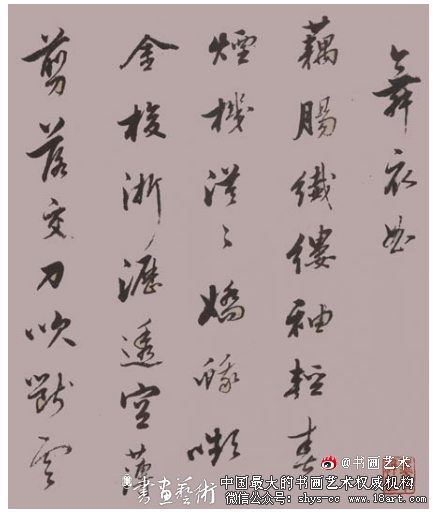 舞衣曲
藕腸纖縷袖輕春
煙機漠〻嬌蛾嚬
金梭淅瀝透空薄
剪落交刀吹斷雲
書畫藝術
@书画艺术
中国最大的书画艺术权威机构
微信公众号:shys-cc www.18art.com